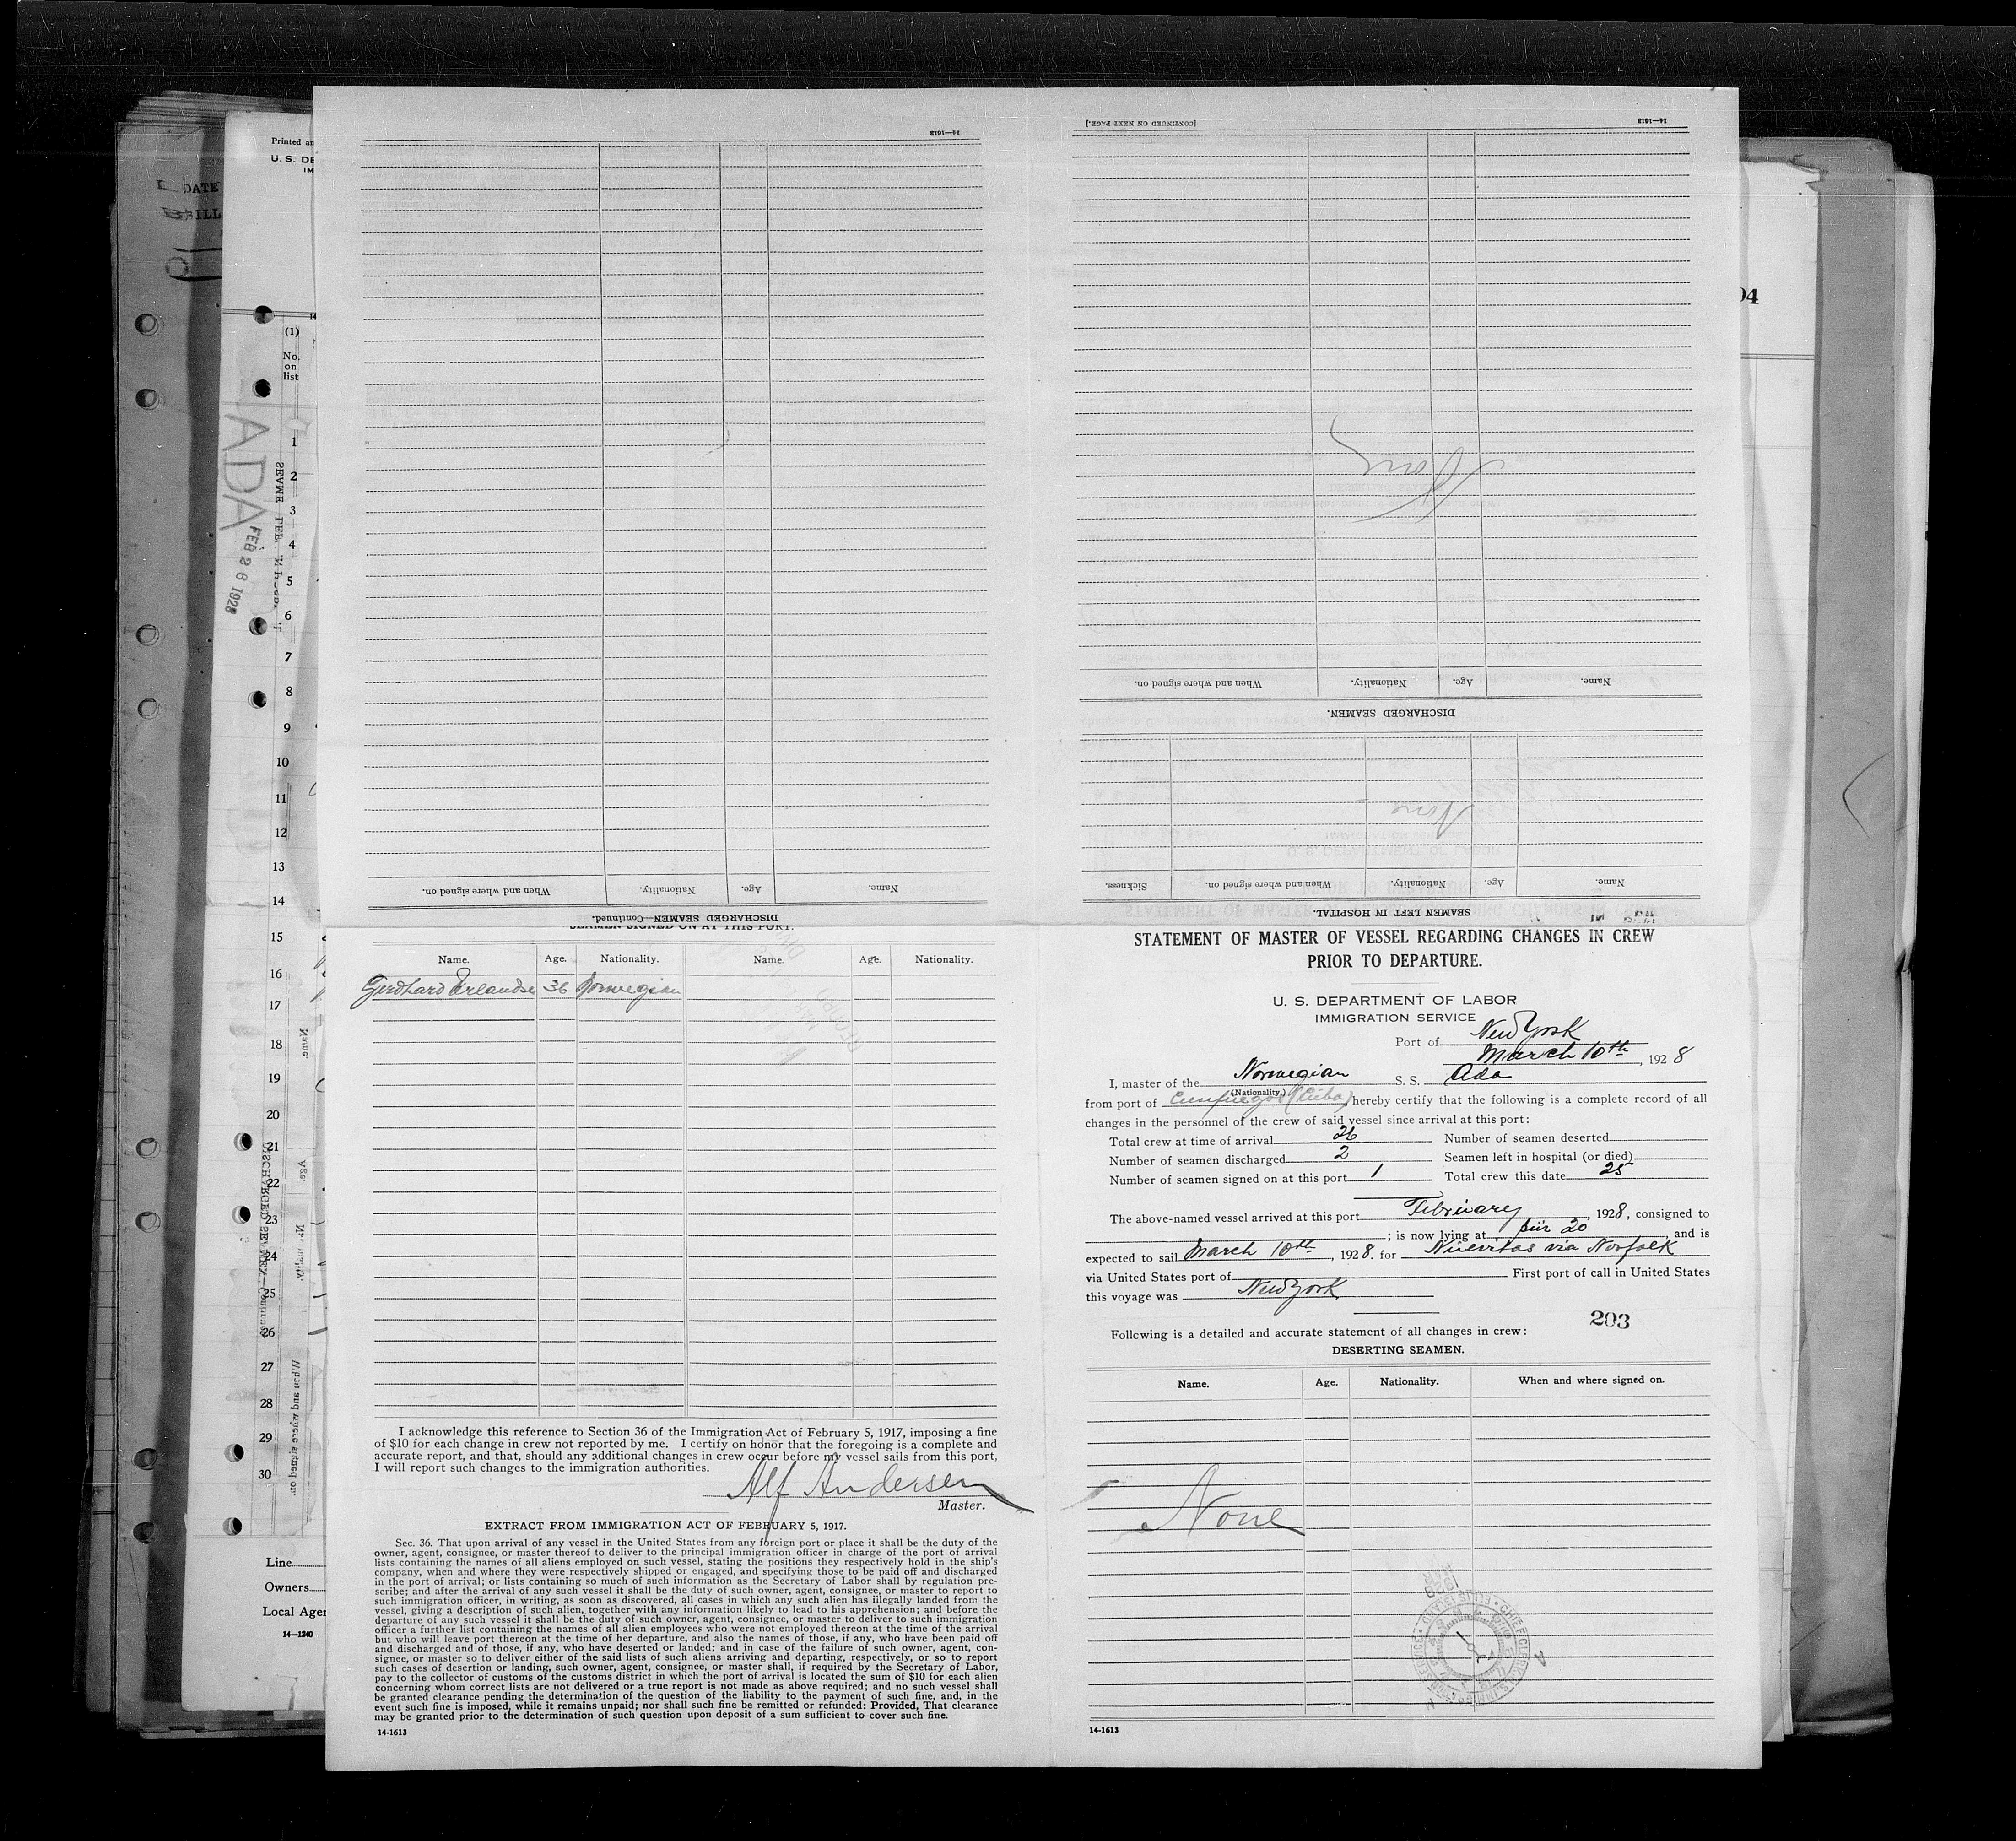 14—1613
[CONTINUED ON NEXT PAGE.]
14—1613
Name.
Age.
Nationality.
When and where signed on.
DISCHARGED SEAMEN—Continued.
None
Name.
Age.
Nationality.
When and where signed on.
DISCHARGED SEAMEN.
None
Name.
Age.
Nationality.
When and where signed on.
Sickness.
SEAMEN LEFT IN HOSPITAL.
Printed an
U. S. DE
IM
DATE
(1)
No.
on
list
1
2
3
4
5
6
7
8
9
10
11
12
13
14
15
16
17
18
19
20
21
22
23
24
25
26
27
28
29
30
ADA
FEB 26 1928
Line
Owners
Local Agen
14—1240
04
SEAMEN SIGNED ON AT THIS PORT.
Name. Age. Nationality. Name. Age. Nationality.
Gerdhard Erlandse 36 Norwegian
I acknowledge this reference to Section 36 of the Immigration Act of February 5, 1917, imposing a fine
of $10 for each change in crew not reported by me. I certify on honor that the foregoing is a complete and
accurate report, and that, should any additional changes in crew occur before my vessel sails from this port,
I will report such changes to the immigration authorities.
Alf Andersen
Master.
EXTRACT FROM IMMIGRATION ACT OF FEBRUARY 5, 1917.
Sec. 36. That upon arrival of any vessel in the United States from any foreign port or place it shall be the duty of the
owner, agent, consignee, or master thereof to deliver to the principal immigration officer in charge of the port of arrival
lists containing the names of all aliens employed on such vessel, stating the positions they respectively hold in the ship's
company, when and where they were respectively shipped or engaged, and specifying those to be paid off and discharged
in the port of arrival; or lists containing so much of such information as the Secretary of Labor shall by regulation pre-
scribe; and after the arrival of any such vessel it shall be the duty of such owner, agent, consignee, or master to report to
such immigration officer, in writing, as soon as discovered, all cases in which any such alien has illegally landed from the
vessel, giving a description of such alien, together with any information likely to lead to his apprehension; and before the
departure of any such vessel it shall be the duty of such owner, agent, consignee, or master to deliver to such immigration
officer a further list containing the names of all alien employees who were not employed thereon at the time of the arrival
but who will leave port thereon at the time of her departure, and also the names of those, if any, who have been paid off
and discharged and of those, if any, who have deserted or landed; and in case of the failure of such owner, agent, con-
signee, or master so to deliver either of the said lists of such aliens arriving and departing, respectively, or so to report
such cases of desertion or landing, such owner, agent, consignee, or master shall, if required by the Secretary of Labor,
pay to the collector of customs of the customs district in which the port of arrival is located the sum of $10 for each alien
concerning whom correct lists are not delivered or a true report is not made as above required; and no such vessel shall
be granted clearance pending the determination of the question of the liability to the payment of such fine, and, in the
event such fine is imposed, while it remains unpaid; nor shall such fine be remitted or refunded: Provided, That clearance
may be granted prior to the determination of such question upon deposit of a sum sufficient to cover such fine.
14-1613
STATEMENT OF MASTER OF VESSEL REGARDING CHANGES IN CREW
PRIOR TO DEPARTURE.
U. S. DEPARTMENT OF LABOR
IMMIGRATION SERVICE
Port of New York
March 10th, 1928
I, master of the Norwegian S. S. Ada
(Nationality.)
from port of Cienfuegos (Cuba) hereby certify that the following is a complete record of all
changes in the personnel of the crew of said vessel since arrival at this port:
Total crew at time of arrival 26 Number of seamen deserted
Number of seamen discharged 2 Seamen left in hospital (or died)
Number of seamen signed on at this port 1 Total crew this date 25
The above-named vessel arrived at this port February, 1928, consigned to
; is now lying at pier 20 and is
expected to sail March 10th, 1928. for Nuevitas via Norfolk
via United States port of First port of call in United States
this voyage was New York
203
Following is a detailed and accurate statement of all changes in crew:
DESERTING SEAMEN.
Name. Age. Nationality. When and where signed on.
None
14-1613